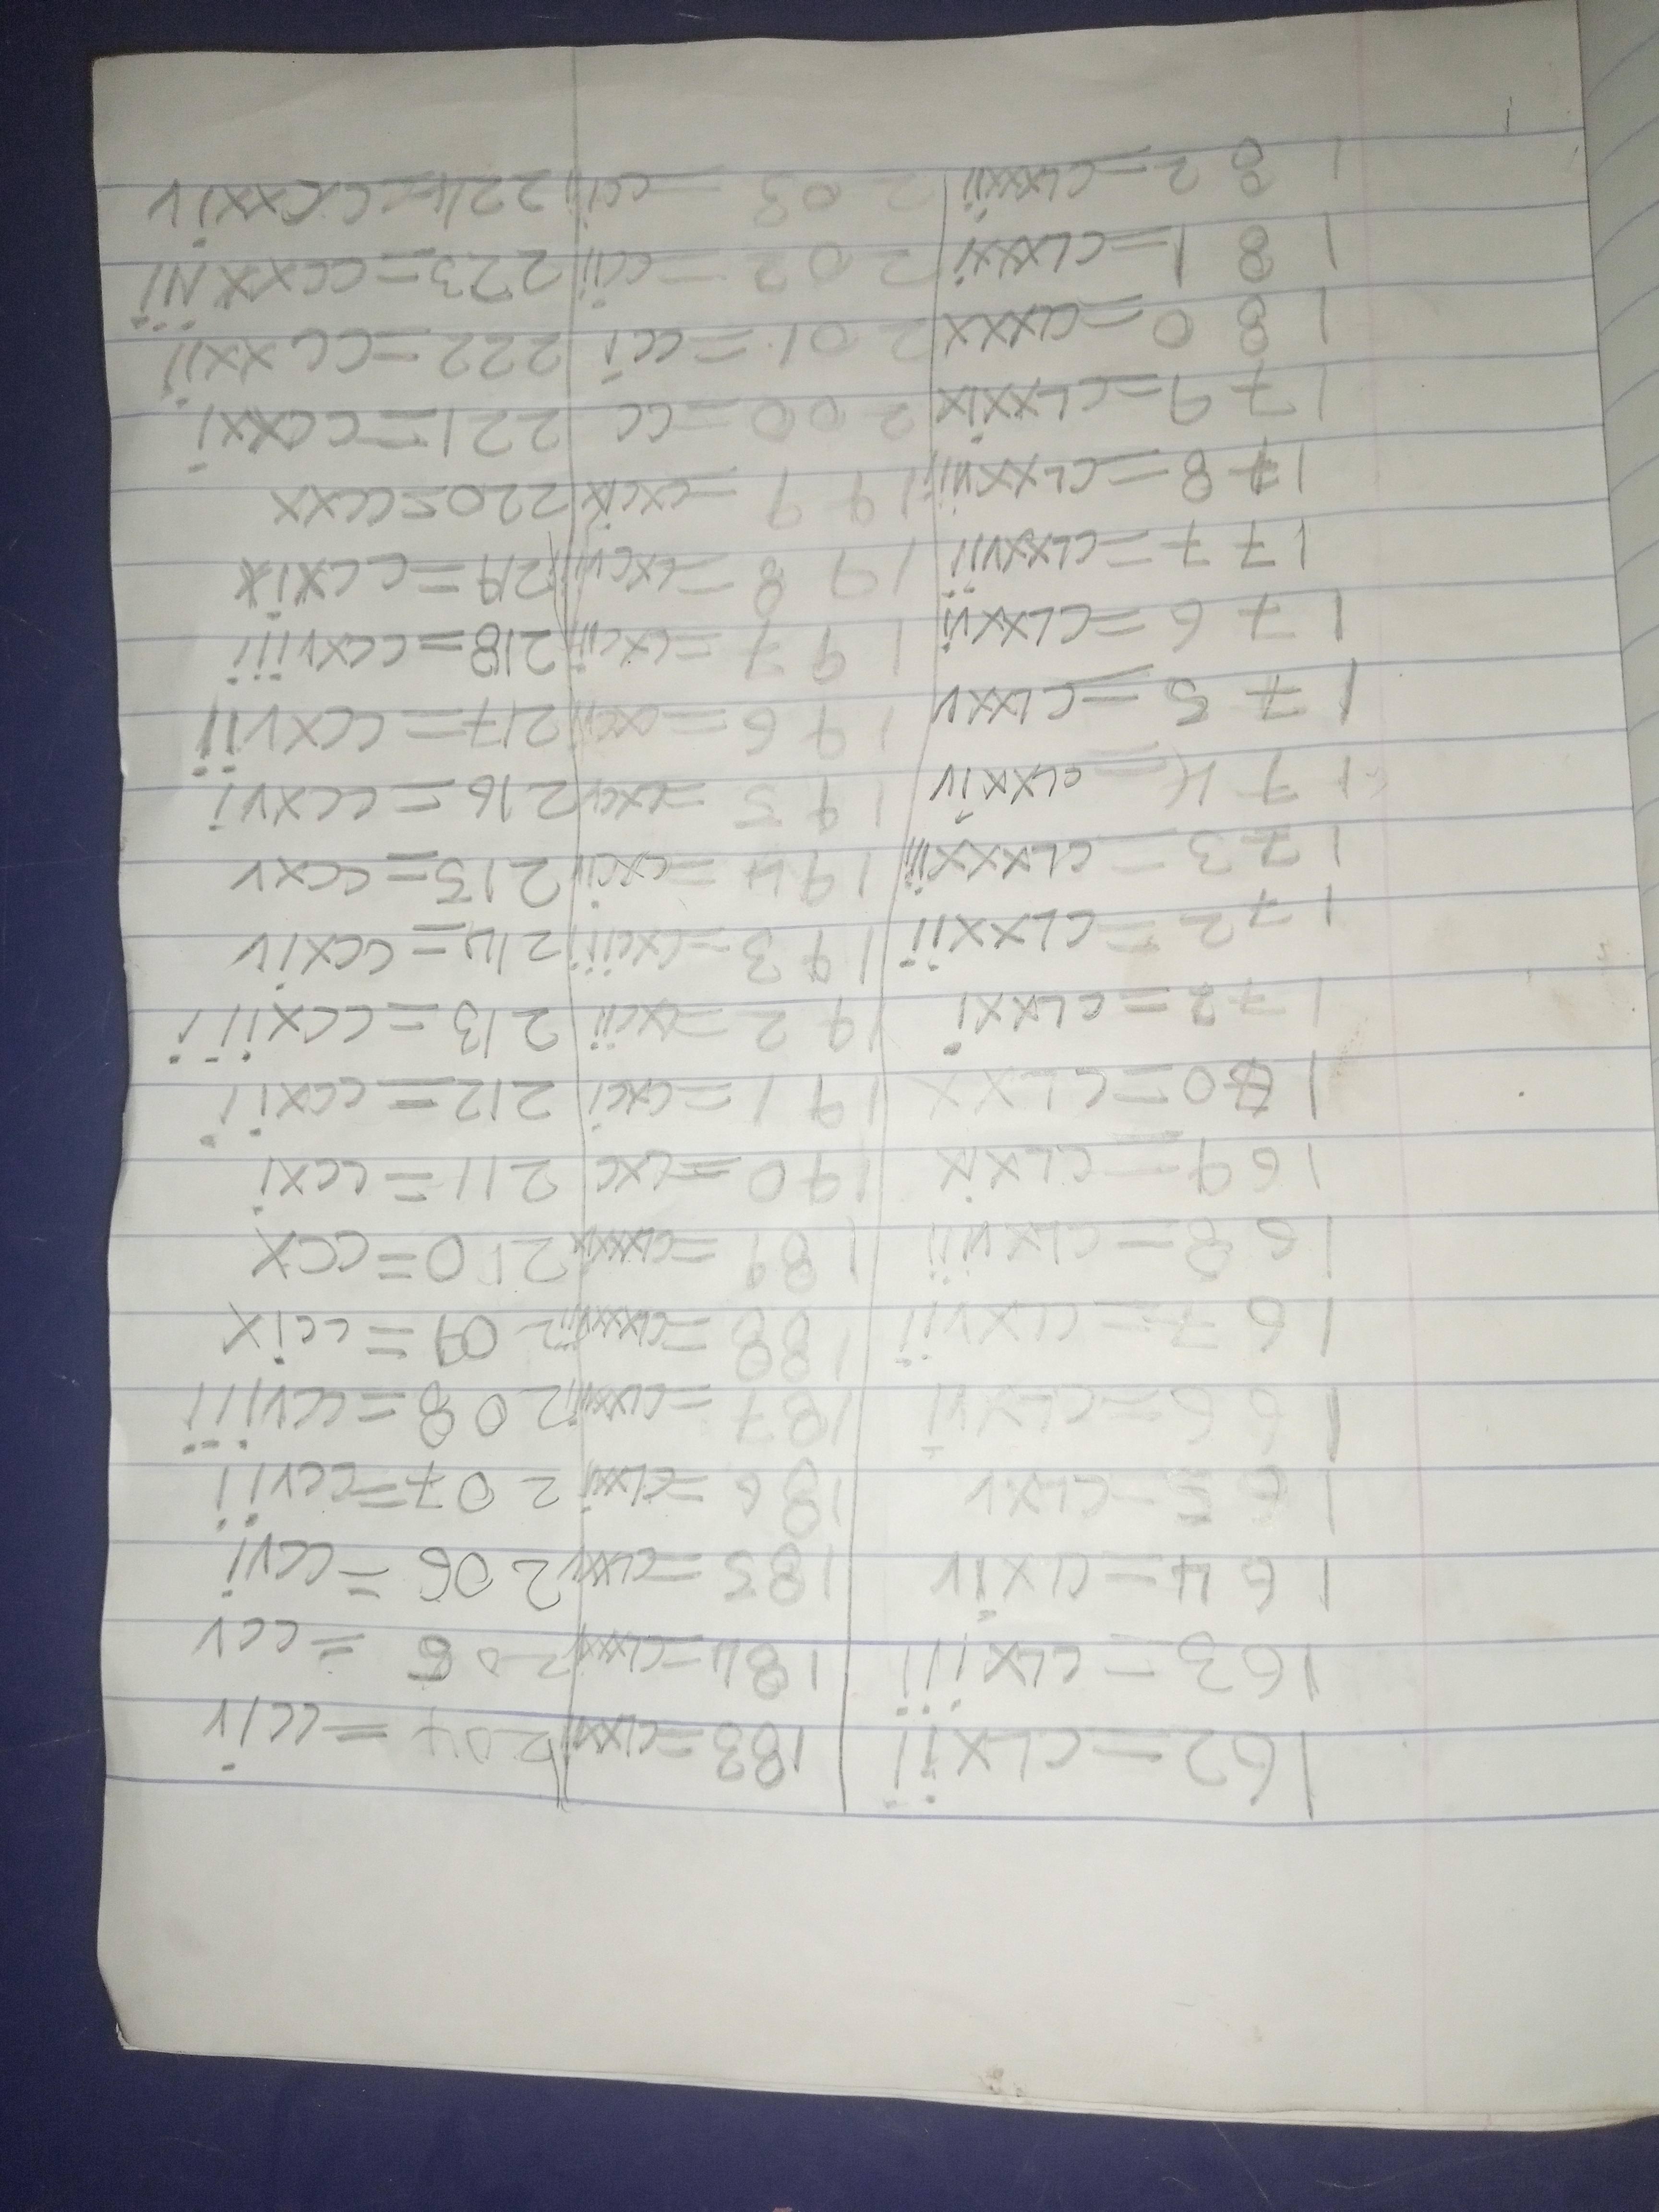 162=CLXii 183=CLXXi 204=cciv
163=CLXiii 184=CLXXX 205=ccv
164=CLXiv 185=CLXXV 206=ccvi
165=CLXV 186=CLXXi 207=ccvii
166=CLXVi 187=CLXXVii 208=ccviii
167=CLXVii 188=CLXXXVii 209=ccix
168=CLXViii 189=CLXXXiX 210=CCX
169=CLXiX 190=CXC 211=CCXi
170=CLXX 191=CXCi 212=CCXii
172=CLXXi 192=CXCii 213=CCXiii
172=CLXXii 193=CXCiii 214=CCXiv
173=CLXXXiii 194=CXCiv 215=CCXV
174=CLXXiv 195=CXCV 216=CCXVi
175=CLXXV 196= 217=CCXVii
176=CLXXVi 197=CXCii 218=CCXViii
177=CLXXVii 198=CXCVi 219=CCXiX
178=CLXXViii 199=CXCiX 220=CCXX
179=CLXXiX 200=CC 221=CCXXi
180=CLXXX 201=CCi 222=CCXXii
181=CLXXXi 202=CCii 223=CCXXiii
182=CLXXXii 203=CCi 224=CCXXiV